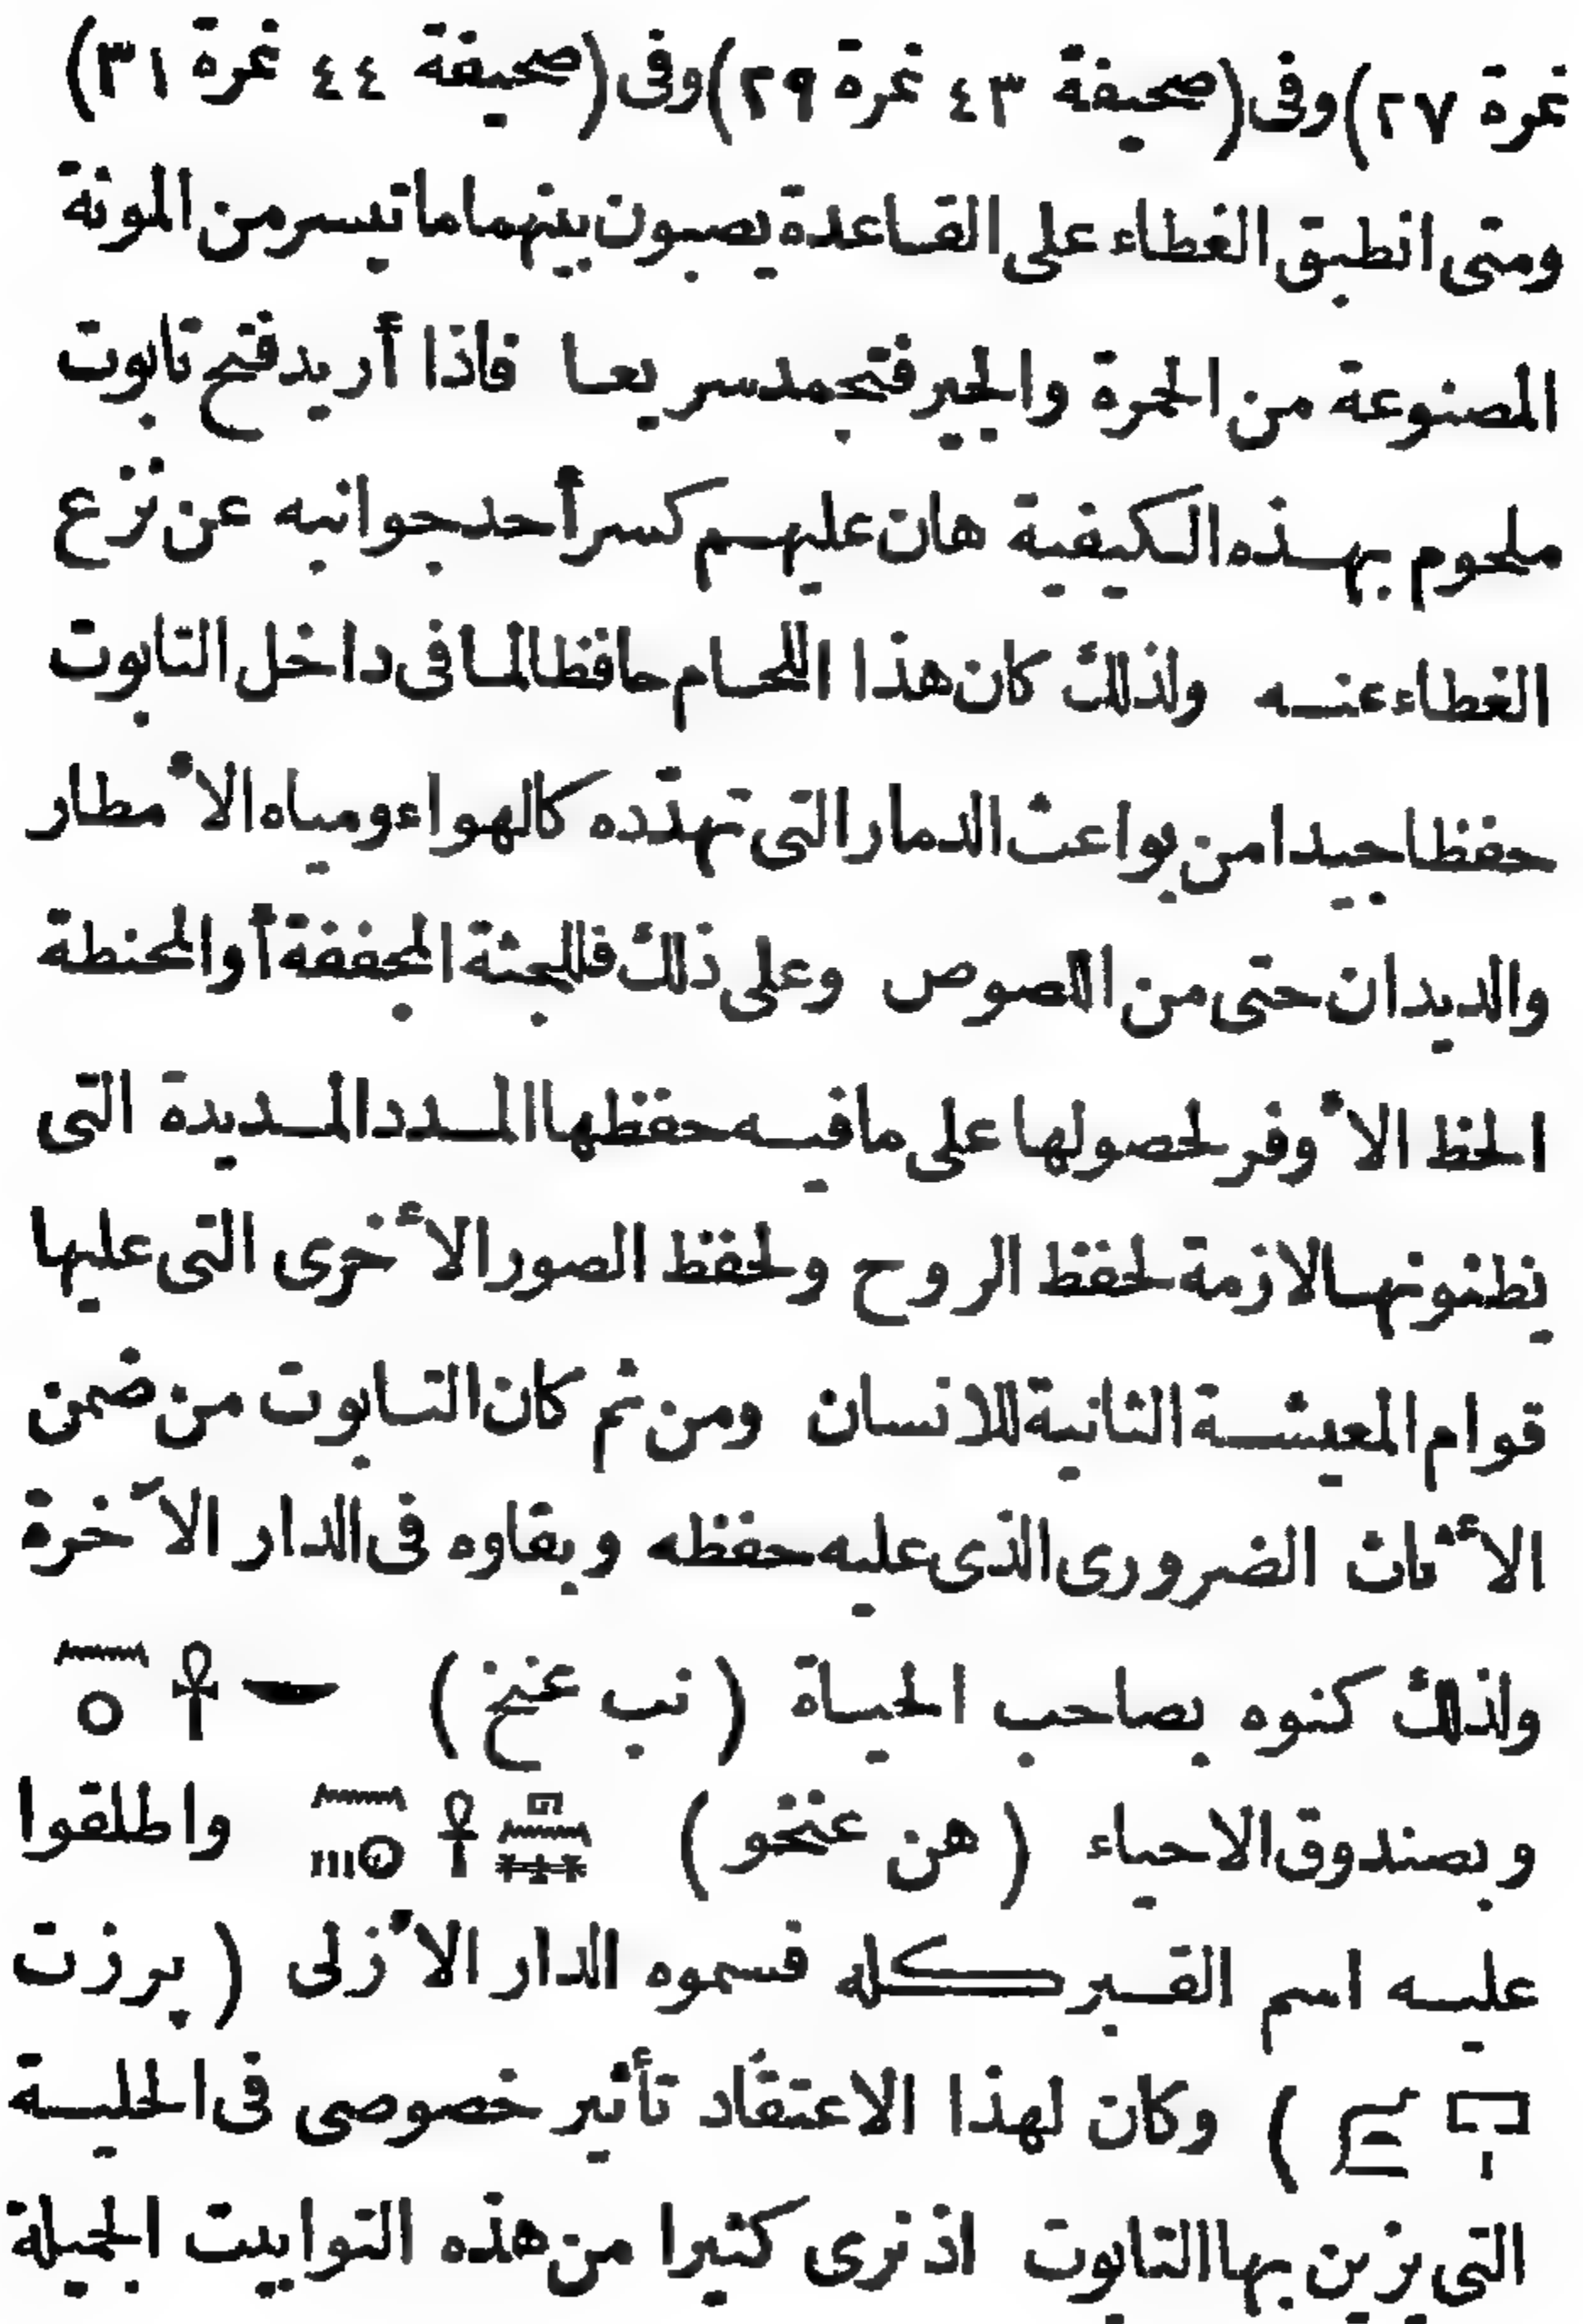 نمرة ٢٧) وفى (صحيفة ٤٣ نمرة ٢٩) وفى (صحيفة ٤٤ نمرة ٣١)
ومتى انطبق الغطاء على القاعدة يصبون بينهما ما تيسر من المونة
المصنوعة من الحمرة والجير فتجمد سريعا فاذا أريد فتح تابوت
ملحوم بهذه الكيفية هان عليهم كسر أحد جوانبه عن نزع
الغطاء عنه ولذلك كان هذا اللحام حافظا لما فى داخل التابوت
حفظا جيدا من بواعث الدمار التى تهدّده كالهواء ومياه الأمطار
والديدان حتى من اللصوص وعلى ذلك فللجثة المجففة أو المحنطة
الحظ الأوفر لحصولها على ما فيه حفظها المدد المديدة التى
يظنونها لازمة لحفظ الروح ولحفظ الصور الأخرى التى عليها
قوام المعيشة الثانية للانسان ومن ثم كان التابوت من ضمن
الأثاث الضرورى الذى عليه حفظه وبقاوه فى الدار الآخرة
ولذلك كنوه بصاحب الحياة (نب عنخ) 𓎟 𓋹 𓈖 𓐍
وبصندوق الاحياء (هن عنخو) 𓋹 واطلقوا
عليه اسم القبر كله فسموه الدار الأزلى (پرزت
𓉐 𓆓 𓏏 𓇾) وكان لهذا الاعتقاد تأثير خصوصى فى الحلية
التى يزين بها التابوت اذ نرى كثيرا من هذه التوابيت الجميلة